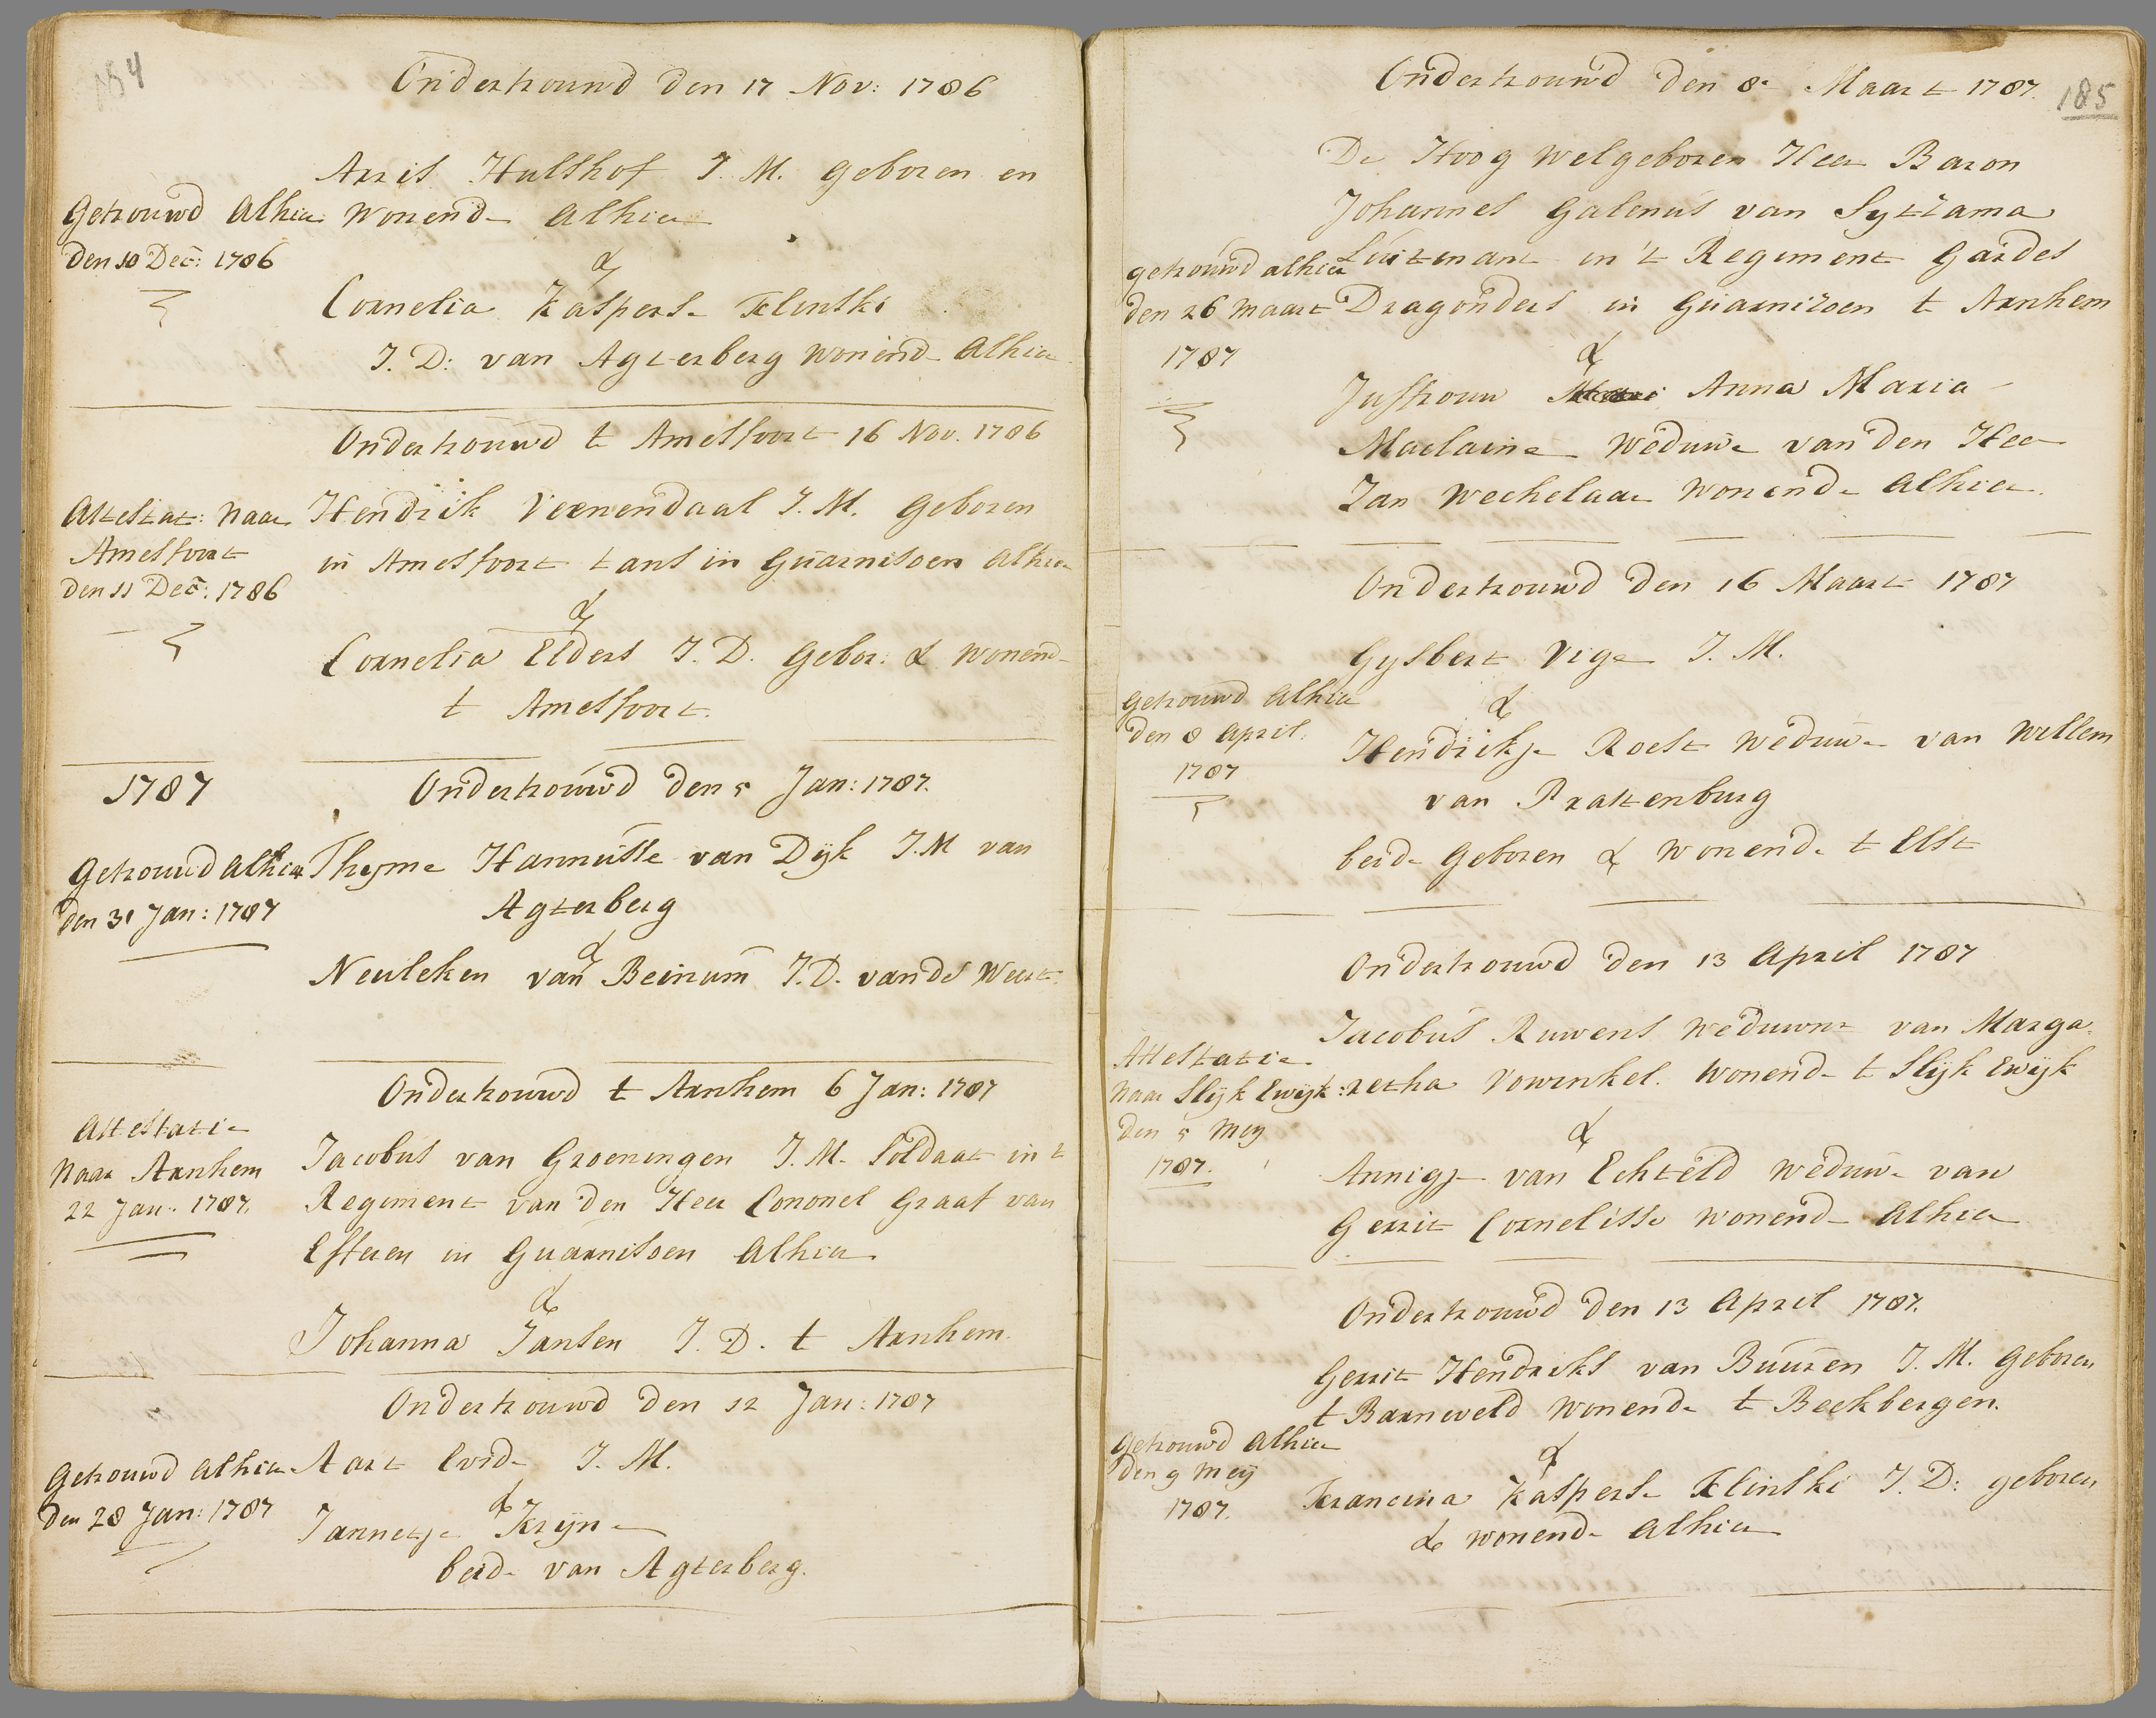 184
Ondertrouwd den 17 Nov: 1786
Arris Hulshof J. M. geboren en
wonende alhier
Getrouwd alhier
den 10 Dec: 1786
&
Cornelia Kaspers Klinski
J. D: van Agterberg wonende alhier
Ondertrouwd te Amesfoort 16 Nov. 1786
Attestat: naar
Amesfoort
den 11 Dec: 1786
Hendrik Veenendaal J. M. geboren
in Amesfoort tans in Guarnisoen alhier
&
Cornelia Elders J. D. gebor: & wonend
te Amesfoort.
1787
Ondertrouwd den 5 Jan: 1787.
Getrouwd alhier
den 31 Jan: 1787
Thyme Hannisse van Dyk J. M van
Agterberg
&
Neuleken van Beinum J. D. van de Weert.
Ondertrouwd te Arnhem 6 Jan: 1787
Attestatie
naar Arnhem
22 Jan: 1787.
Jacobus van Groeningen J. M. Soldaat in t
Regiment van den Heer Cononel Graaf van
Efferen in Guarnisoen alhier
&
Johanna Jansen J. D. te Arnhem.
Ondertrouwd den 12 Jan: 1787
Getrouwd alhier
den 28 Jan: 1787
Aart Evide J. M.
&
Jannetje Kryne
beide van Agterberg.
185
Ondertrouwd den 8 Maart 1787.
De Hoog Welgeboren Heer Baron
Johannes Galenus van Sytzama
Luitenant in 't Regiment Gardes
Dragonders in Guarnizoen te Arnhem
getrouwd alhier
den 26 Maart
1787
&
Juffrouw Anna Maria
Maclaine weduwe van den Heer
Jan Wechelaar wonende alhier.
Ondertrouwd den 16 Maart 1787
Gysbert Vige J. M.
getrouwd alhier
den 8 April.
1787
&
Hendrikje Roest weduwe van Willem
van Prattenburg
beide geboren & wonende te Elst
Ondertrouwd den 13 April 1787
Attestatie
naar Slyk Ewyk:
den 5 Mey
1787.
Jacobus Ruwens weduwnr van Marga-
retha Vowinkel. wonende te Slyk Ewyk
&
Annigje van Echteld weduwe van
Gerrit Cornelisse wonende alhier
Ondertrouwd den 13 April 1787.
Gerrit Hendriks van Buuren J. M. geboren
te Barneveld wonende te Beekbergen.
Getrouwd alhier
den 9 Mey
1787.
&
Francina Kaspers Klinski J. D: geboren
& wonende alhier